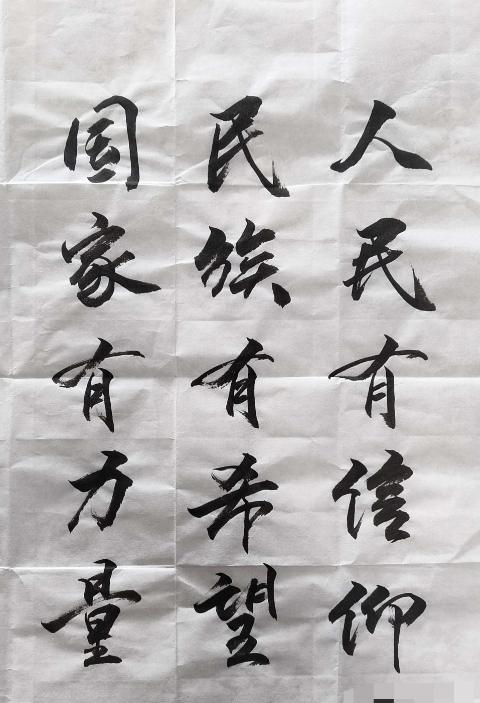 人民有信仰
民族有希望
国家有力量